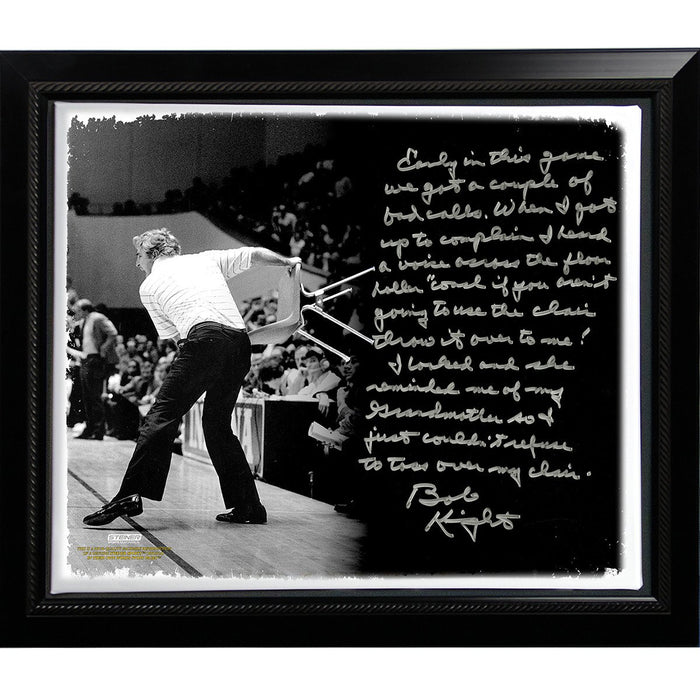 Early in this game
we got a couple of
bad calls. When I got
up to complain I heard
a voice across the floor
holler "coach if you aren't
going to use the chair
throw it over to me!
I looked and she
reminded me of my
Grandmother so I
just couldn't refuse
to toss over my chair.
Bob
Knight
STEINER